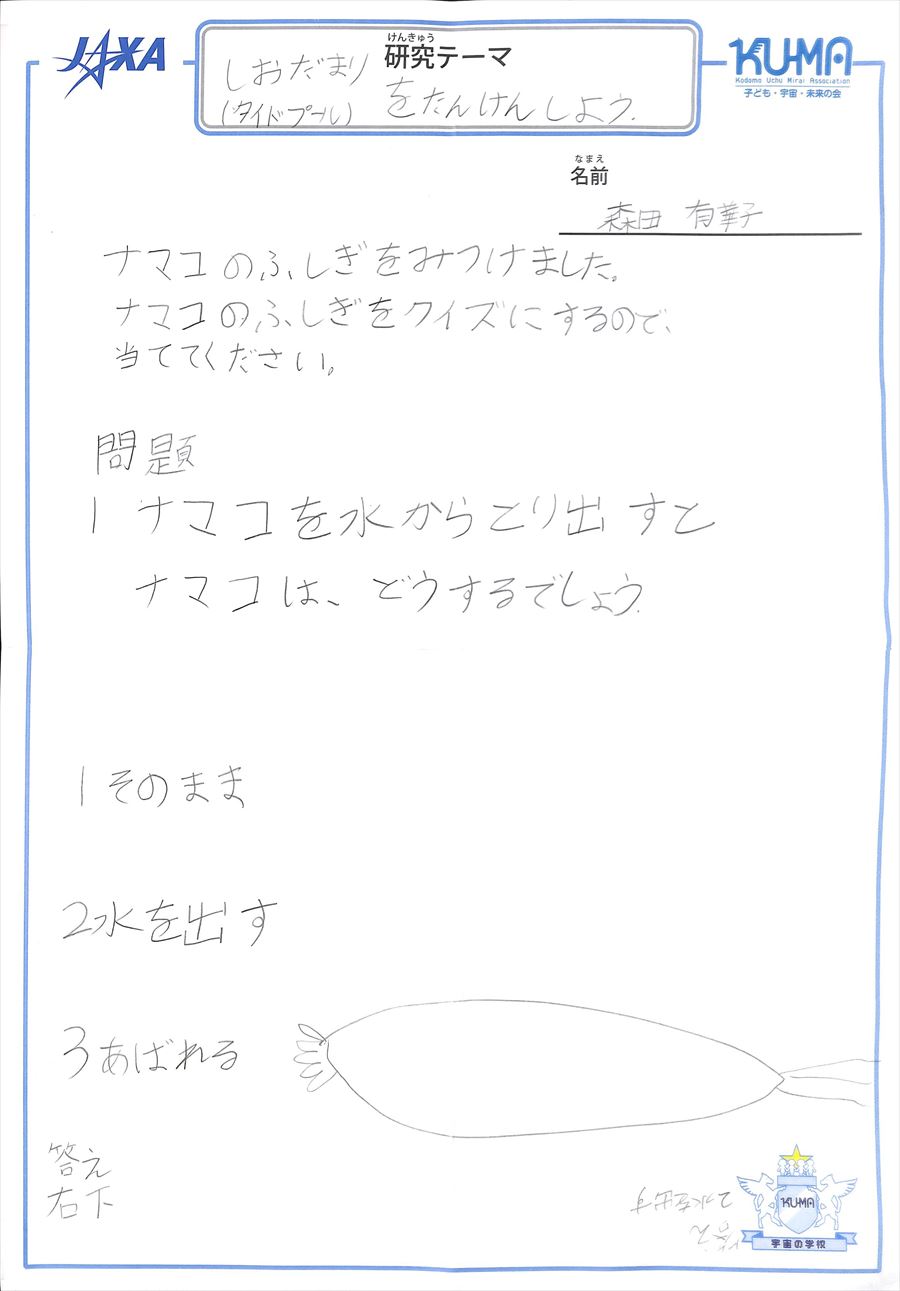 JAXA
けんきゅう
研究テーマ
しおだまり
(タイドプール)
をたんけんしよう.
KU-MA
Kodomo Uchu Mirai Association
子ども・宇宙・未来の会
なまえ
名前
森田 有華子
ナマコのふしぎをみつけました。
ナマコのふしぎをクイズにするので、
当ててください。
問題
1 ナマコを水からとり出すと
ナマコは、どうするでしょう.
1 そのまま
2 水を出す
3 あばれる
答え
右下
答え
2水を出す
KU-MA
宇宙の学校